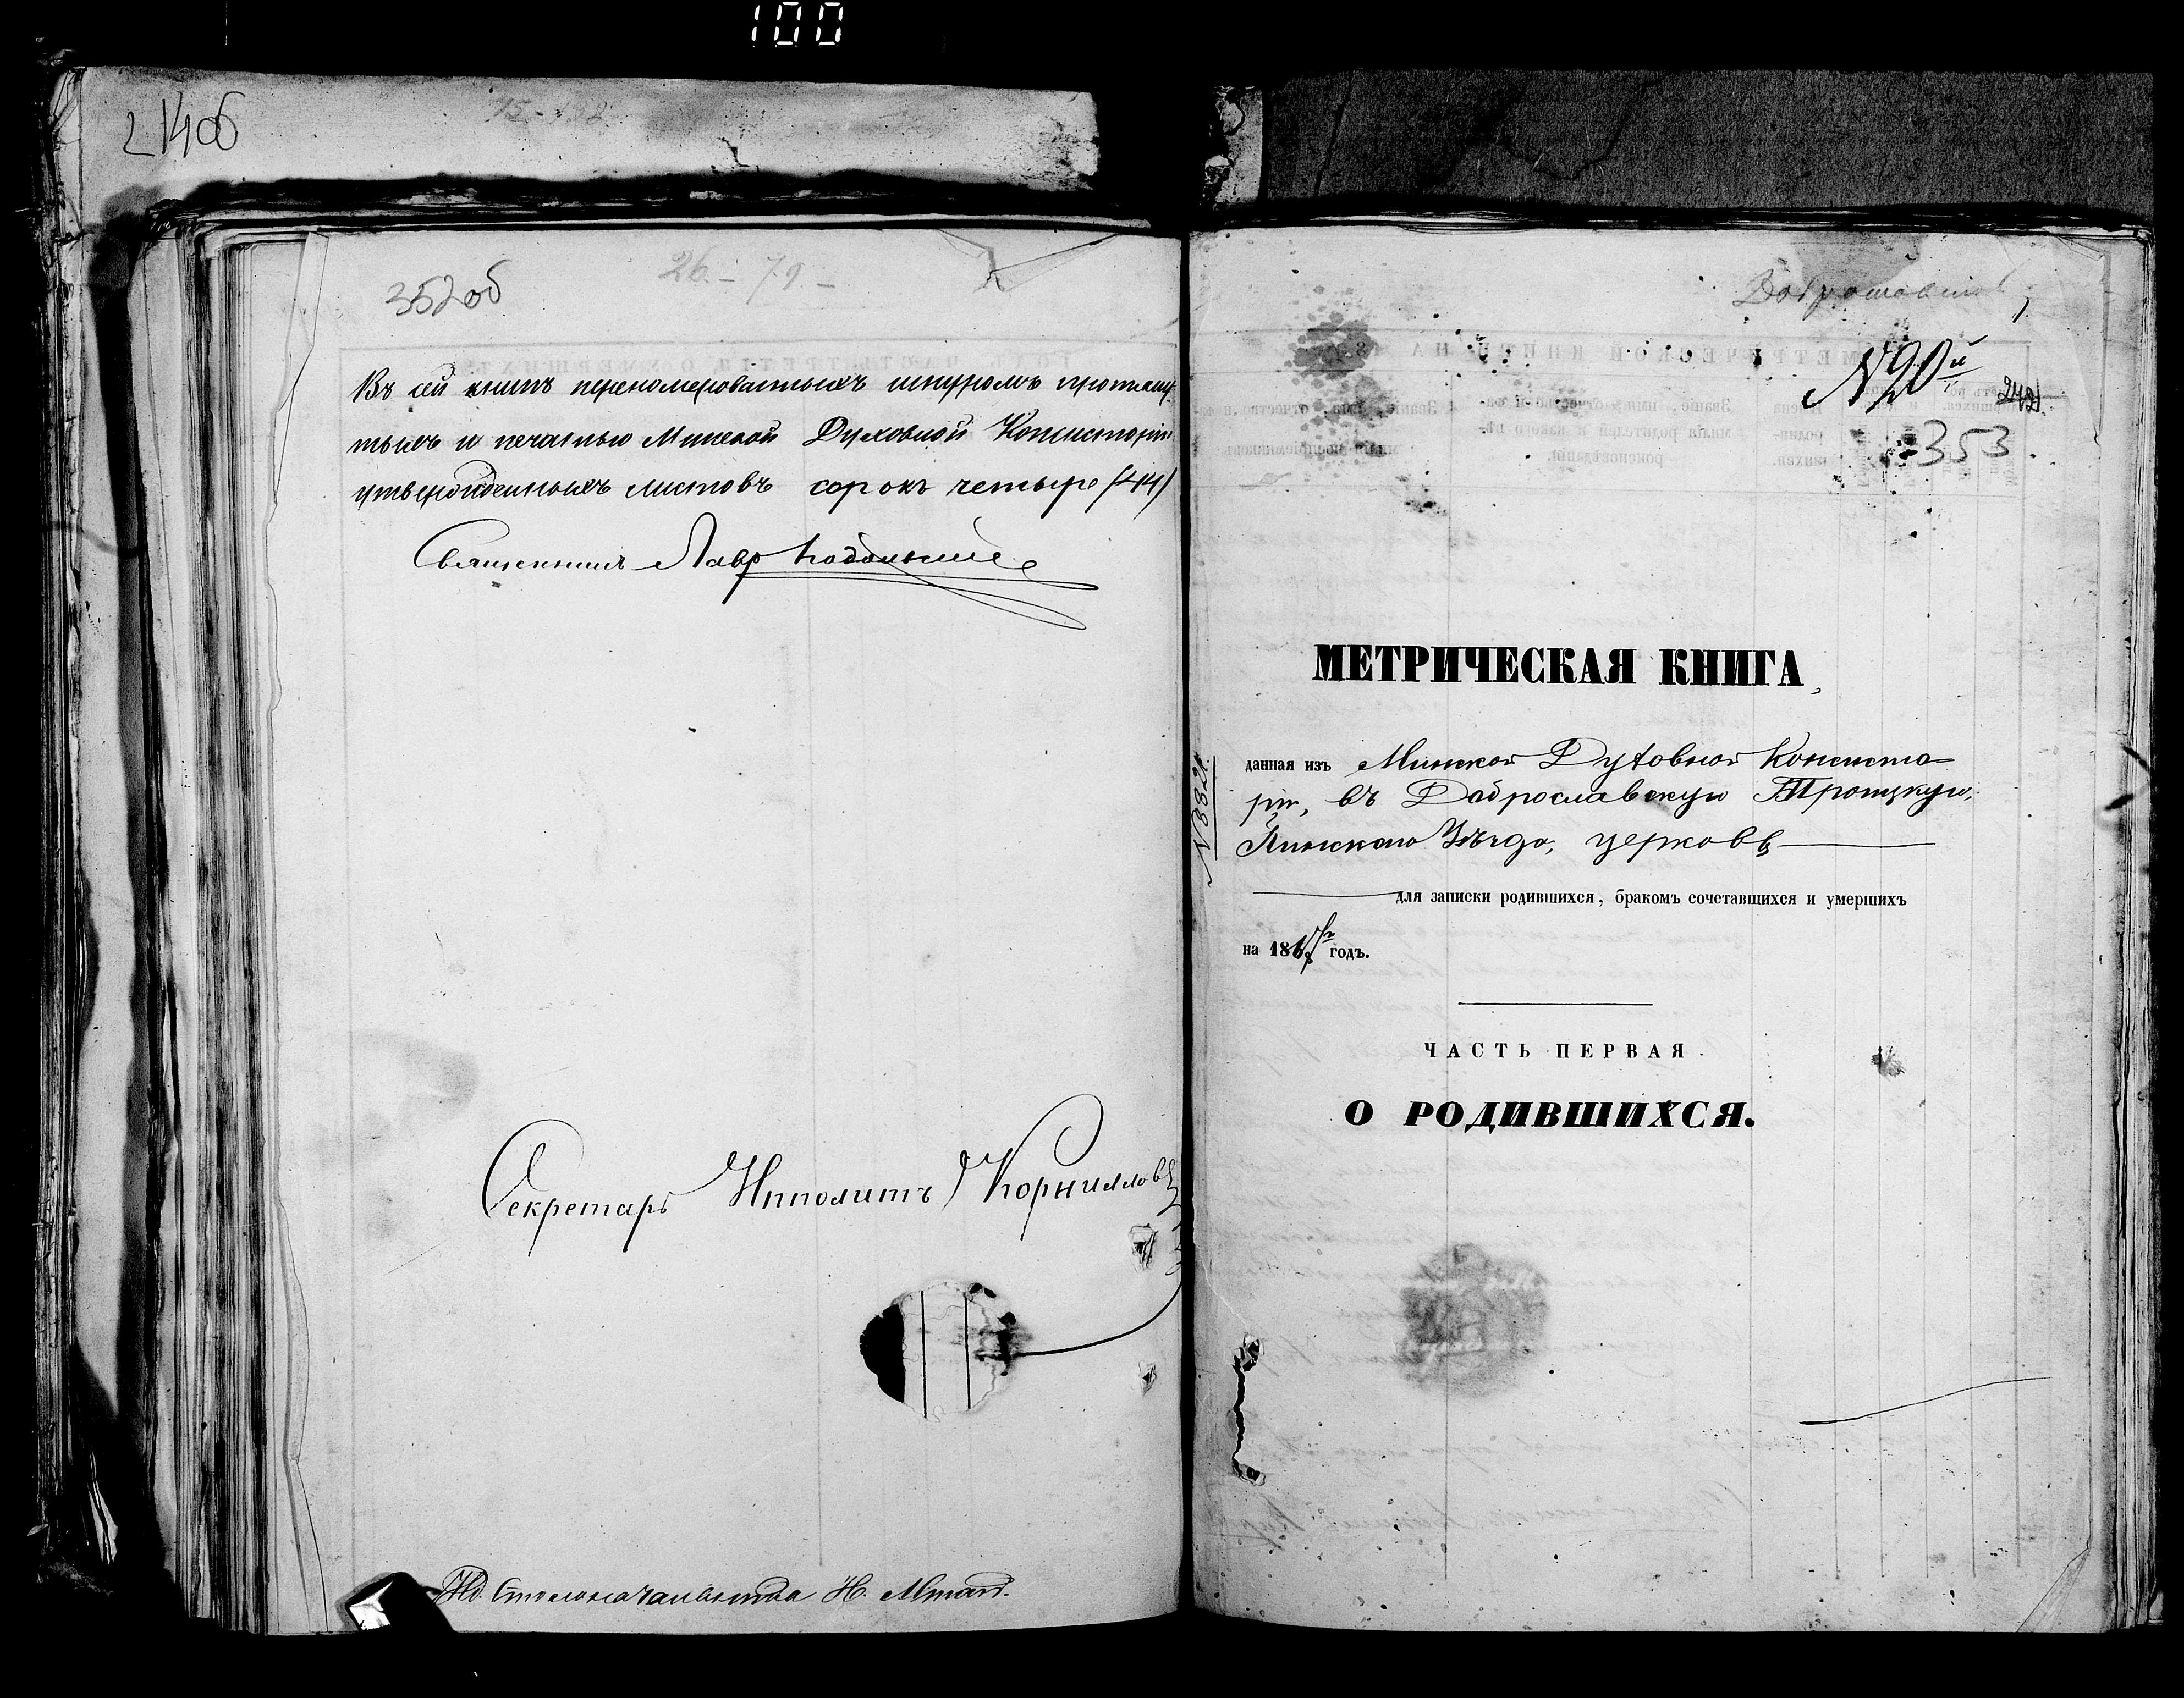 100
214об
15-132
352об
26.-79.-
Въ сей книгѣ перенумерованныхъ шнуромъ прошну-
тыхъ и печатью Минской Духовной Консисторіи
утвержденныхъ листовъ сорокъ четыре (44)
Священникъ Лавръ
Секретарь Ипполитъ Корниловъ
Столоначальника Н.
№ 20й
242
353
МЕТРИЧЕСКАЯ КНИГА,
данная изъ Минской Духовной Консисто-
ріи, въ Доброславскую Троицкую,
Пинскаго Уѣзда, церковь
для записки родившихся, бракомъ сочетавшихся и умершихъ
на 1867й годъ.
№ 882.
ЧАСТЬ ПЕРВАЯ.
О РОДИВШИХСЯ.